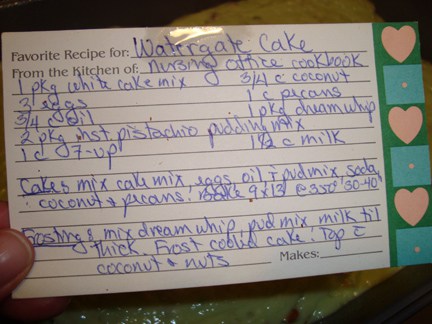 Favorite Recipe for: Watergate Cake
From the Kitchen of: Nursing office cookbook
1 pkg white cake mix 3/4 c coconut
3 eggs 1 c pecans
3/4 c oil 1 pkg dream whip
2 pkg inst pistachio pudding mix
1 c 7-up 1 1/2 c milk
Cake: mix cake mix, eggs, oil, 1 pud mix, soda,
coconut & pecans. Bake 9x13 @ 350° 30-40
Frosting: mix dream whip, pud mix, milk til
thick. Frost cooled cake. Top c̄
coconut & nuts
Makes: